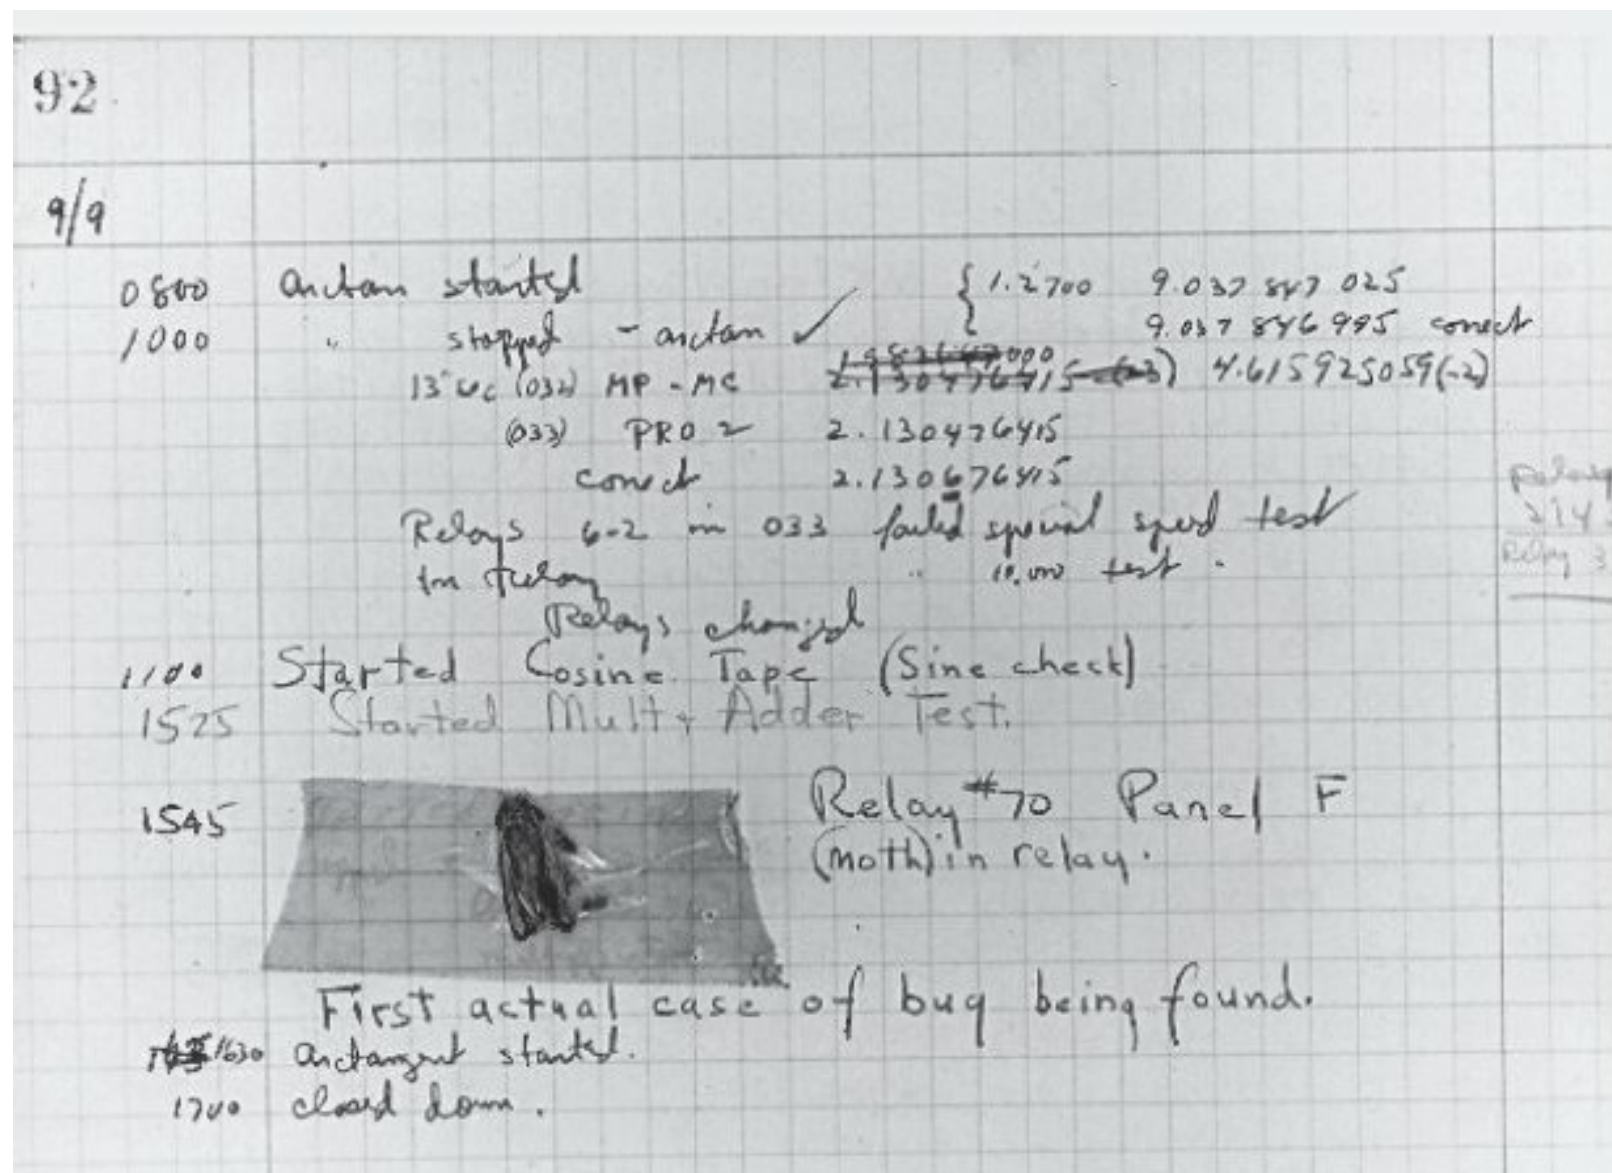 92
9/9
0800 arctan started { 1.2700 9.037 847 025
1000 " stopped - arctan ✓ 9.037 846 995 correct
13"uc (032) MP - MC 2.130476415 (-3) 4.615925059(-2)
(033) PRO 2 2.130476415
correct 2.130676415
Relays 6-2 in 033 failed special speed test
in relay " 10,000 test .
Relays changed
1100 Started Cosine Tape (Sine check)
1525 Started Mult + Adder Test.
1545 Relay #70 Panel F
(moth) in relay.
First actual case of bug being found.
1630 arctangent started.
1700 closed down .
Relay
Relay 3